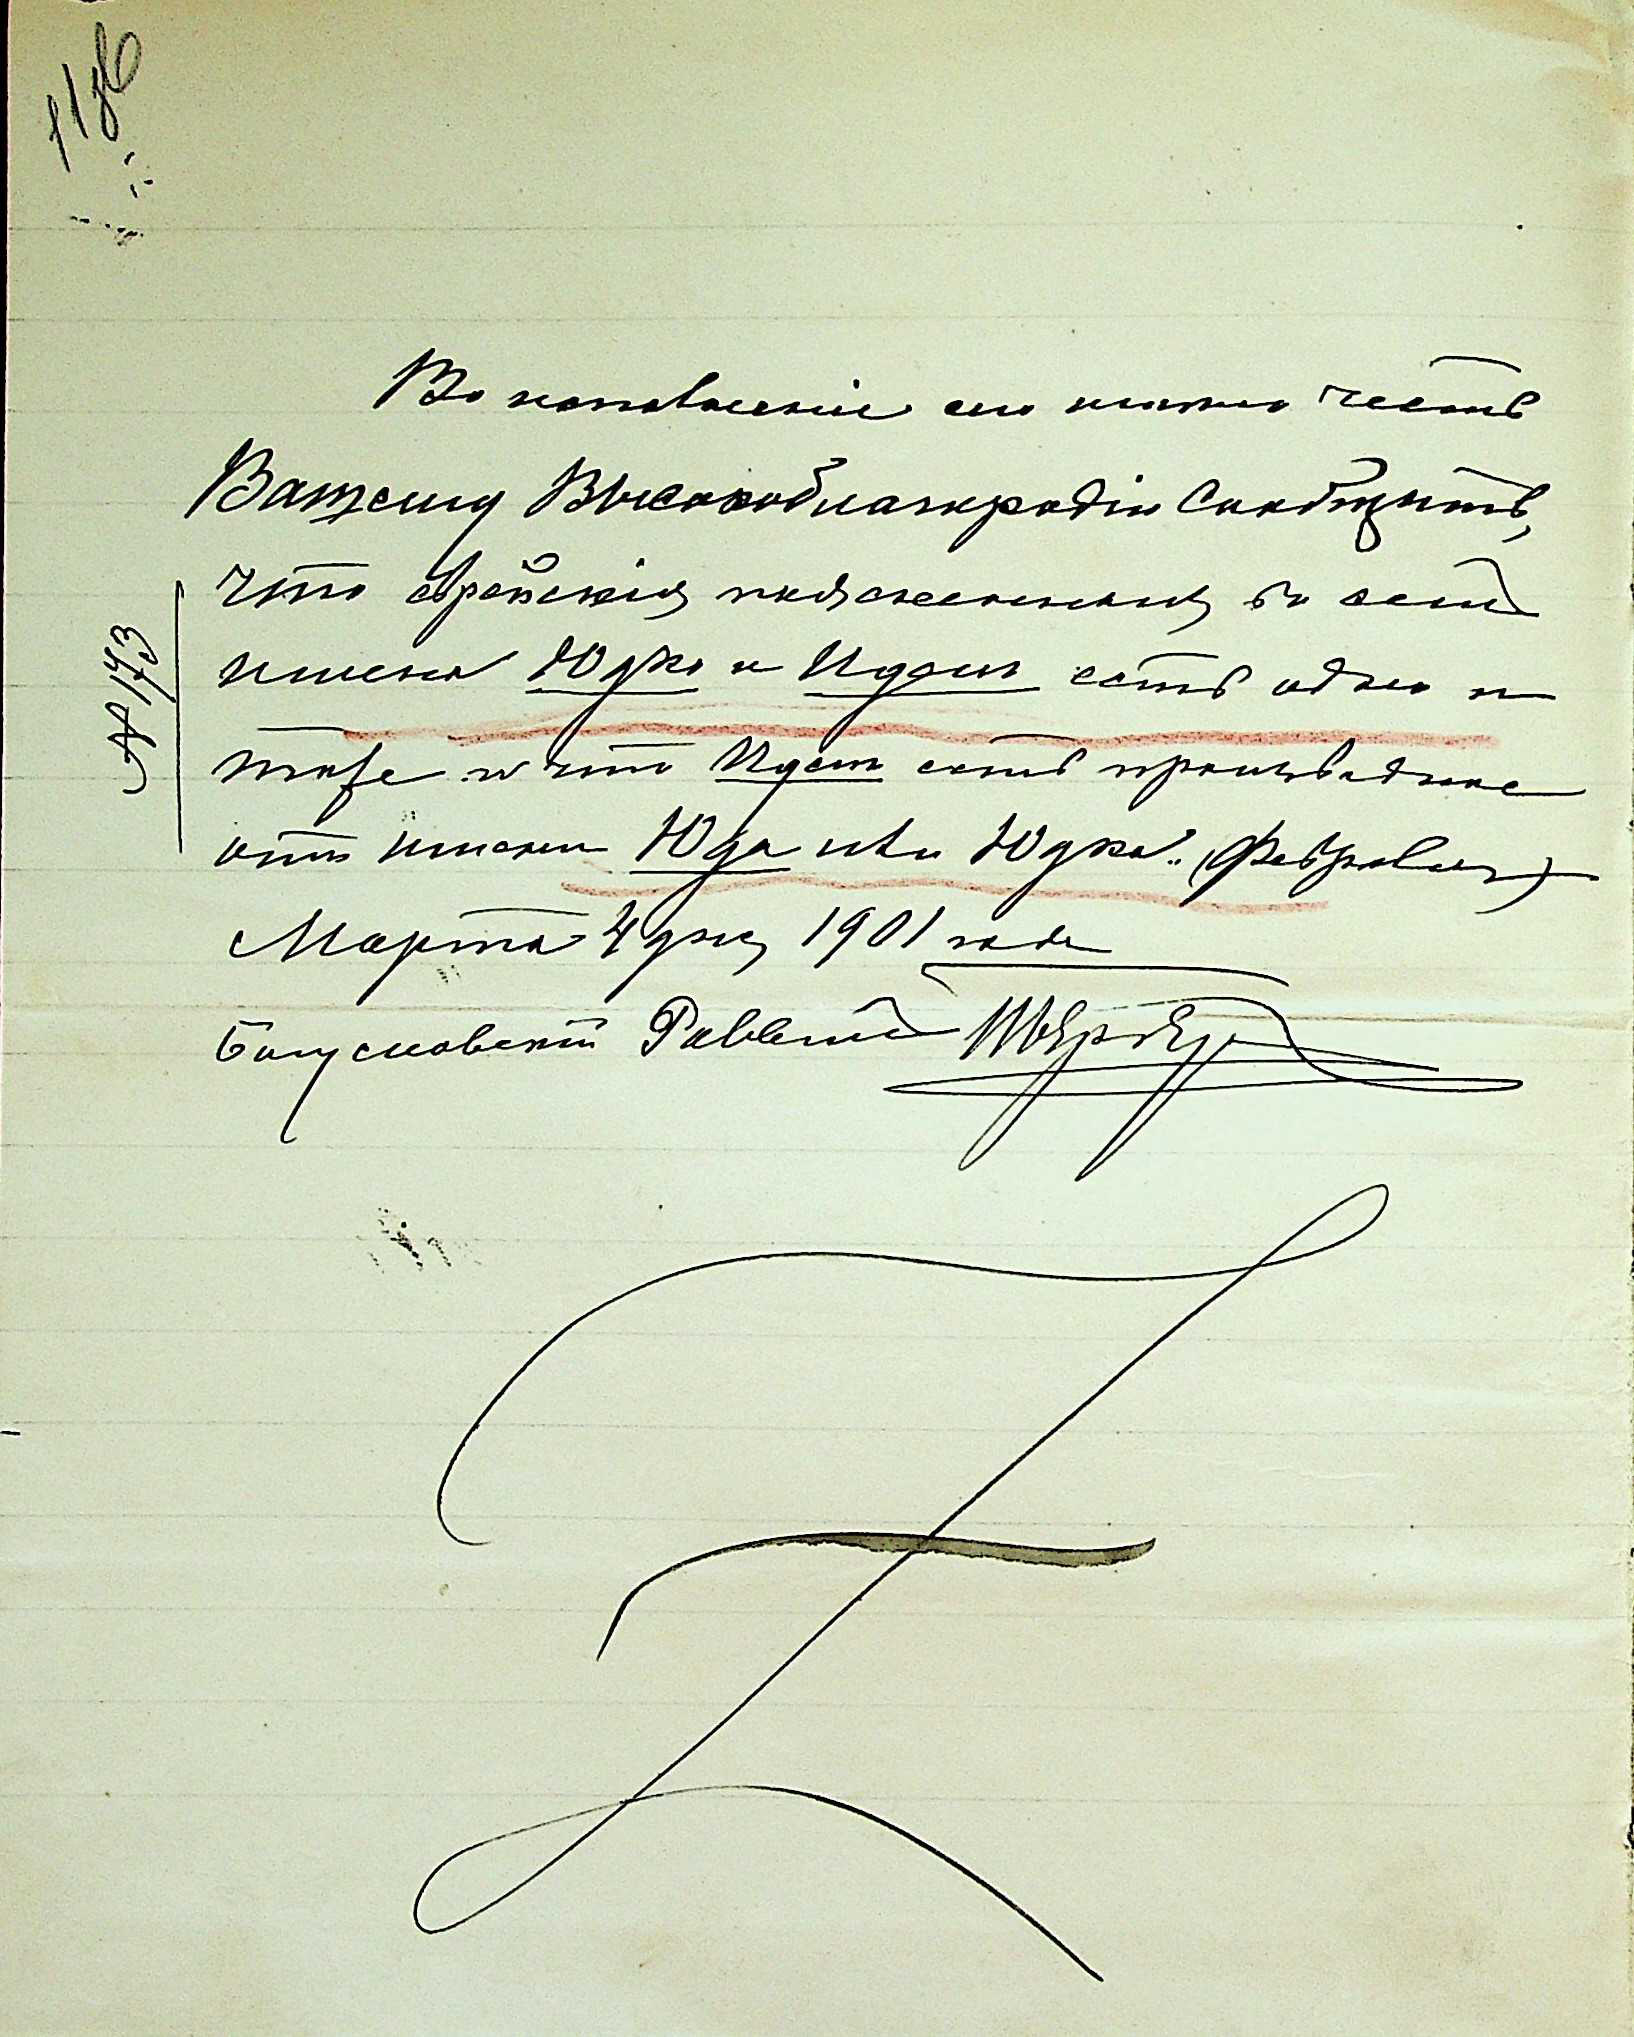 Во исполненіе сего имѣю честь
Вашему Высокоблагородію сообщить,
что еврейскія
имена Юдко и Идель есть одно и
тоже и что Идель есть производное
отъ имени Юда или Юдка. (Февраля)
Марта 4 дня 1901 года
Богуславскій Раввинъ
№ 173